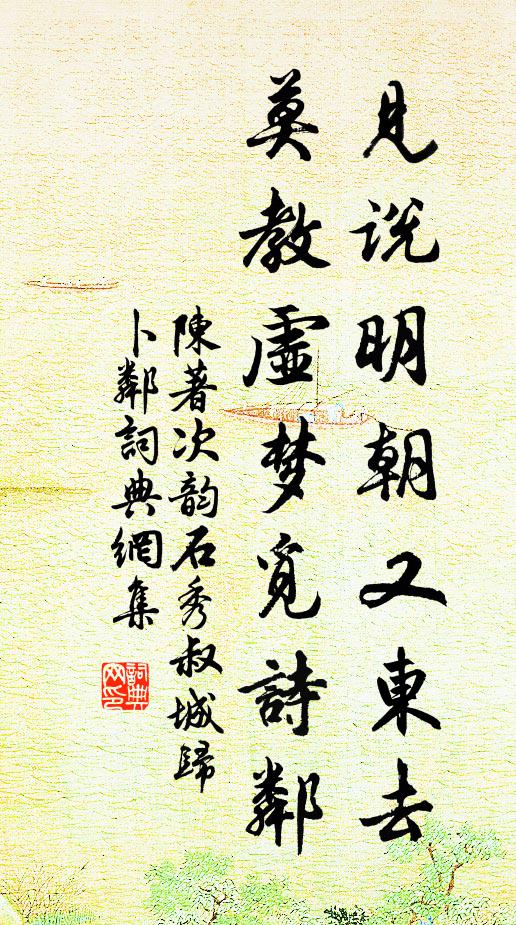 見说明朝又東去
莫教虛梦覓詩鄰
陳著次韵石秀叔城歸
卜鄰詞典網集
詞典
网印